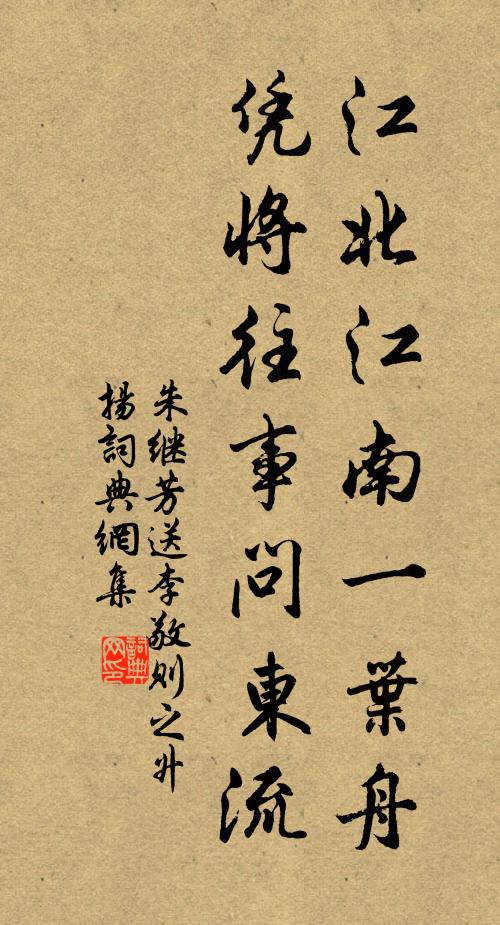 江北江南一葉舟
凭將往事問東流
朱继芳送李敬则之升
揚詞典網集
詞典网印